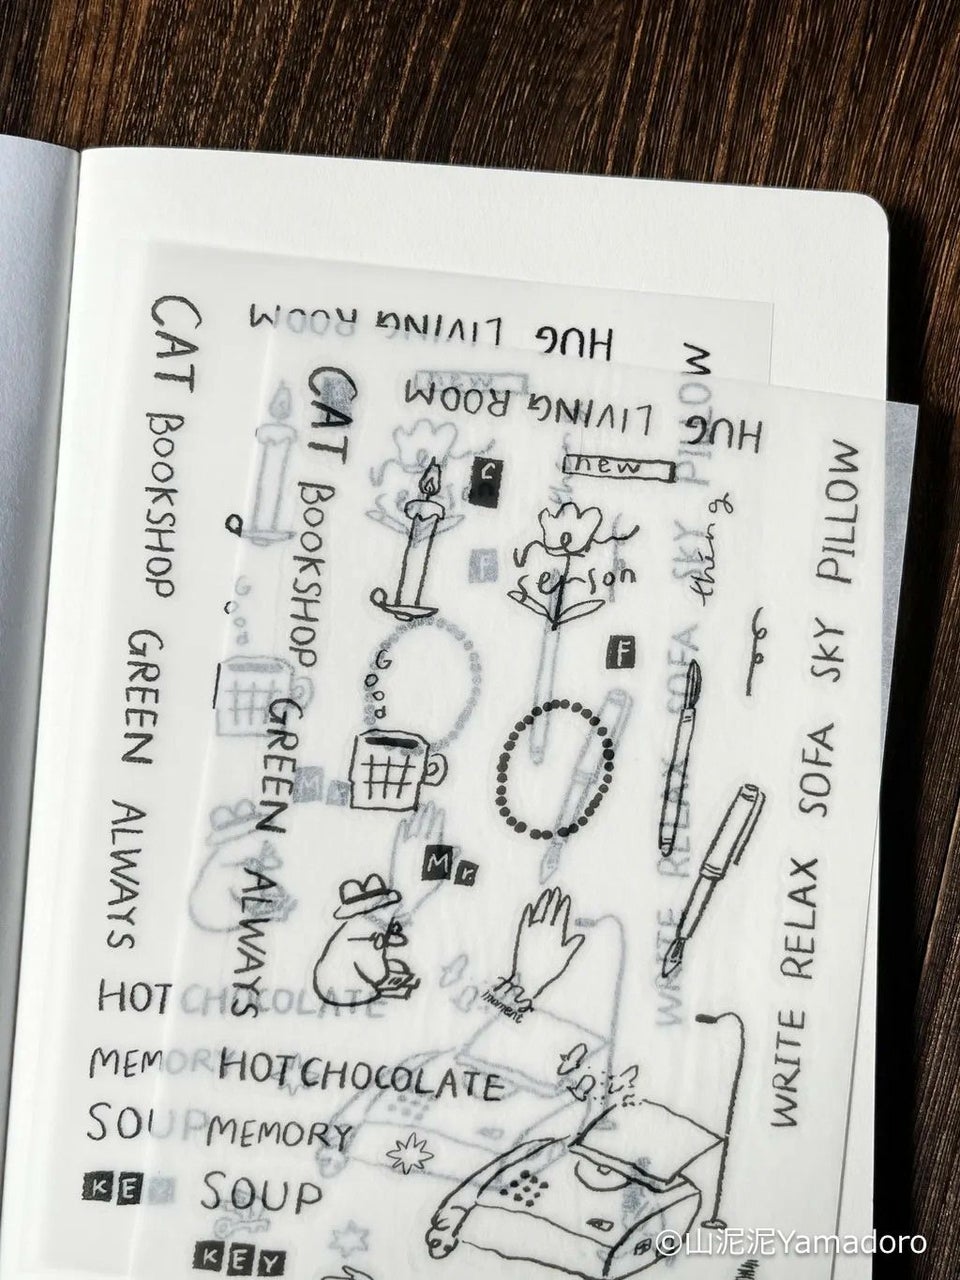 HUG LIVING ROOM
CAT BOOKSHOP GREEN ALWAYS
HOT CHOCOLATE
MEMORY
SOUP
KEY
HUG LIVING ROOM
CAT BOOKSHOP GREEN ALWAYS
WRITE RELAX SOFA SKY PILLOW
WRITE RELAX SOFA SKY PILLOW
new
C
thing
F
Mr
my
moment
HOT CHOCOLATE
MEMORY
SOUP
KEY
new
F
@山泥泥Yamadoro